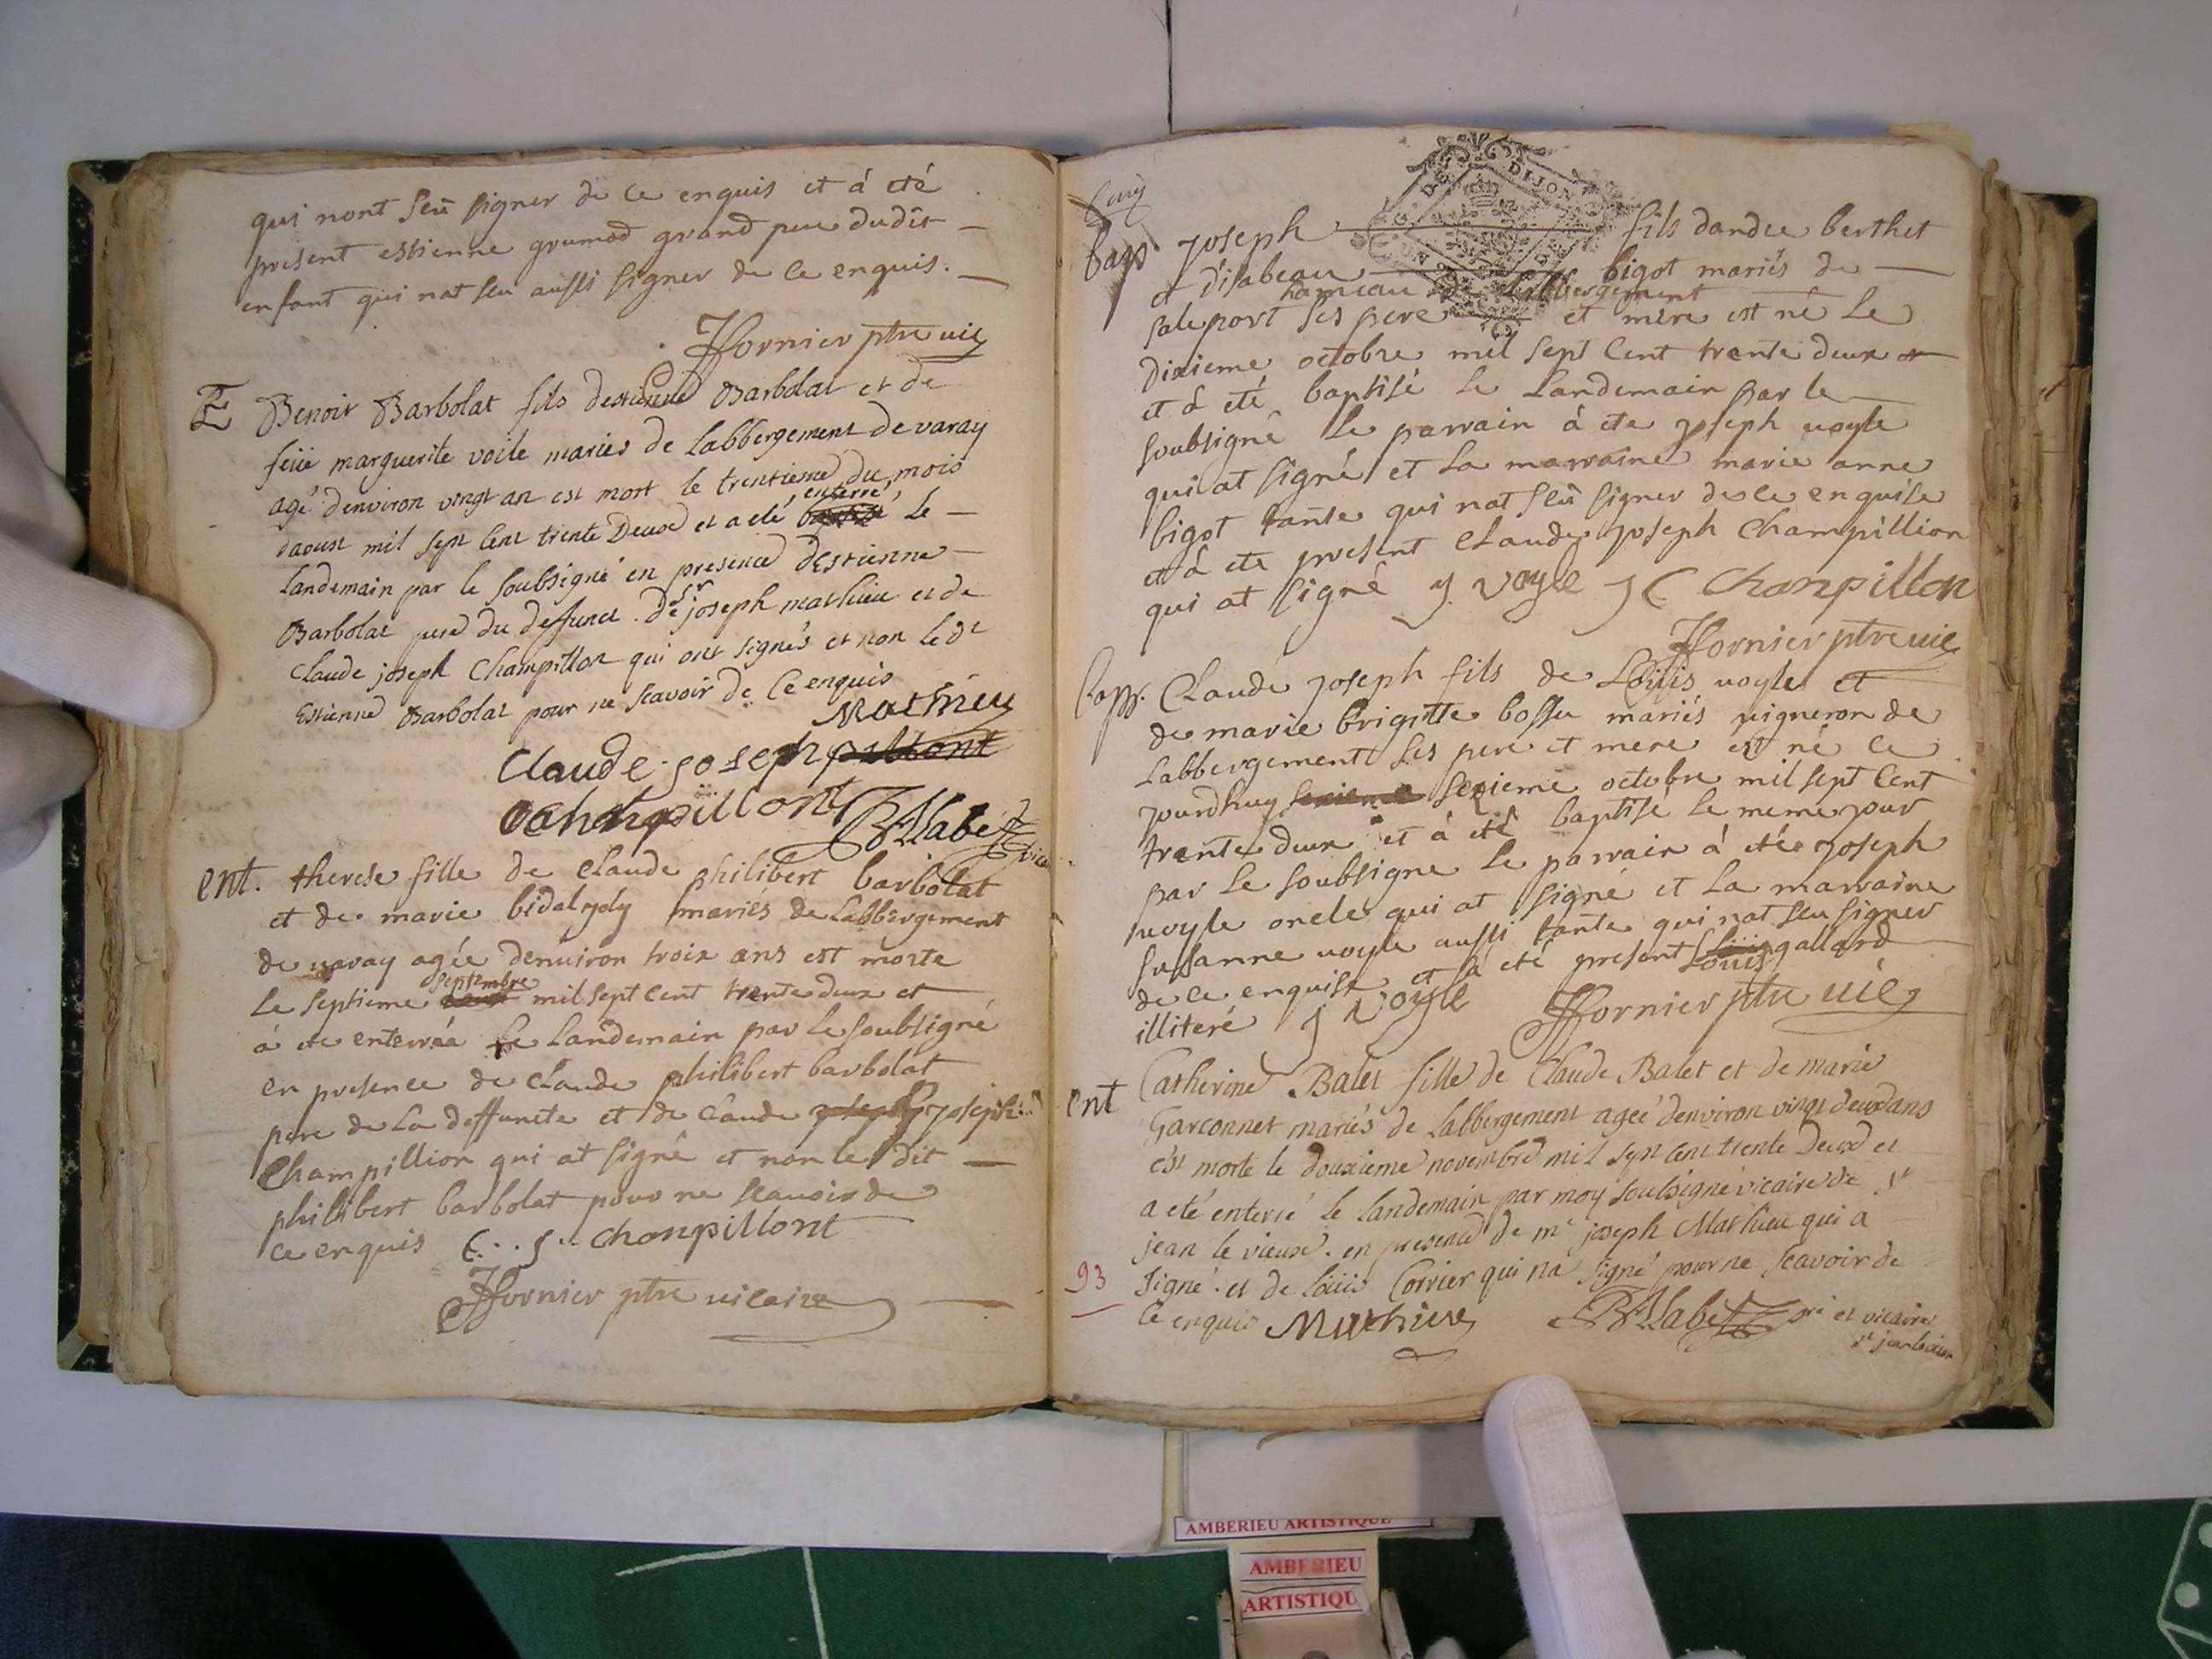 qui nont seu signer de ce enquis et á eté
present estienne grumod grand pere dudit
enfant qui nat seu aussi signer de ce enquis.
Hornier ptre vic
E Benoit Barbolat fils destienne Barbolat et de
feüe marguerite voile maries de Labbergement de varay
agé denviron vingt an est mort le trentieme du mois
daoust mil sept cent trente Deux et a eté enterré le
landemain par le soubsigné en presence destienne
Barbolat pere du deffunct. De sr joseph mathieu et de
Claude joseph Champillon qui ont signés et non le dt
Estienne Barbolat pour ne scavoir de ce enquis
Mathieu
Claude joseph pillont
chanpillont BAlabe
vic
ent. therese fille de claude philibert barbolat
et de marie bidal mariés de Labbergement
de varay agée denuiron troix ans est morte
Le septieme septembre mil sept cent trente deux et
á ete enterrée Le Landemain par le soubsigné
en presence de claude philibert barbolat
pere de La deffuncte et de claude joseph
Champillion qui at signé et non le dit
philibert barbolat pour ne scauoir de
ce enquis C. j. Chanpillont
Hornier ptre vicaire
DIJON
bap. joseph fils dandre berthet
et disabeau bigot mariés de
hameau de Labbergement
saleport ses pere et mère est né le
dixieme octobre mil sept cent trente deux
et á eté baptisé le Landemain par le
soubsigné Le parrain á ete joseph uoyle
qui at signé et La marraine marie anne
bigot tante qui nat seu signer de ce enquise
et á ete present claude joseph champillion
qui at signé j. voyle j C Chanpillon
Hornier ptre vic
bapt. Claude joseph fils de Loüis uoyle et
de marie brigitte bossu mariés uigneron de
Labbergement ses pere et mere est né ce
jourdhuy sexieme sexieme octobre mil sept cent
trente deux et á eté baptise le meme jour
par Le soubsigne le parrain á etée joseph
uoyle oncle qui at signé et La marraine
susanne uoyle aussi tante qui nat seu signer
de ce enquise et á eté present Louis gallard
illiteré j voyle Hornier ptre vic
ent Catherine Balet fille de Claude Balet et de marie
Garconnet mariés de Labbergement ageé denviron vingt deux ans
est morte le douxieme novembre mil sept cent trente Deux et
a eté enterré le landemain par moy soubsigné vicaire de st
jean le vieux. en presence de mr joseph Mathieu qui a
93 signé. et de loüis Corrier qui na signé pour ne scavoir de
ce enquis Mathieu BAlabe pr et vicaire
st jean le vieux
AMBERIEU ARTISTIQUE
AMBERIEU
ARTISTIQU